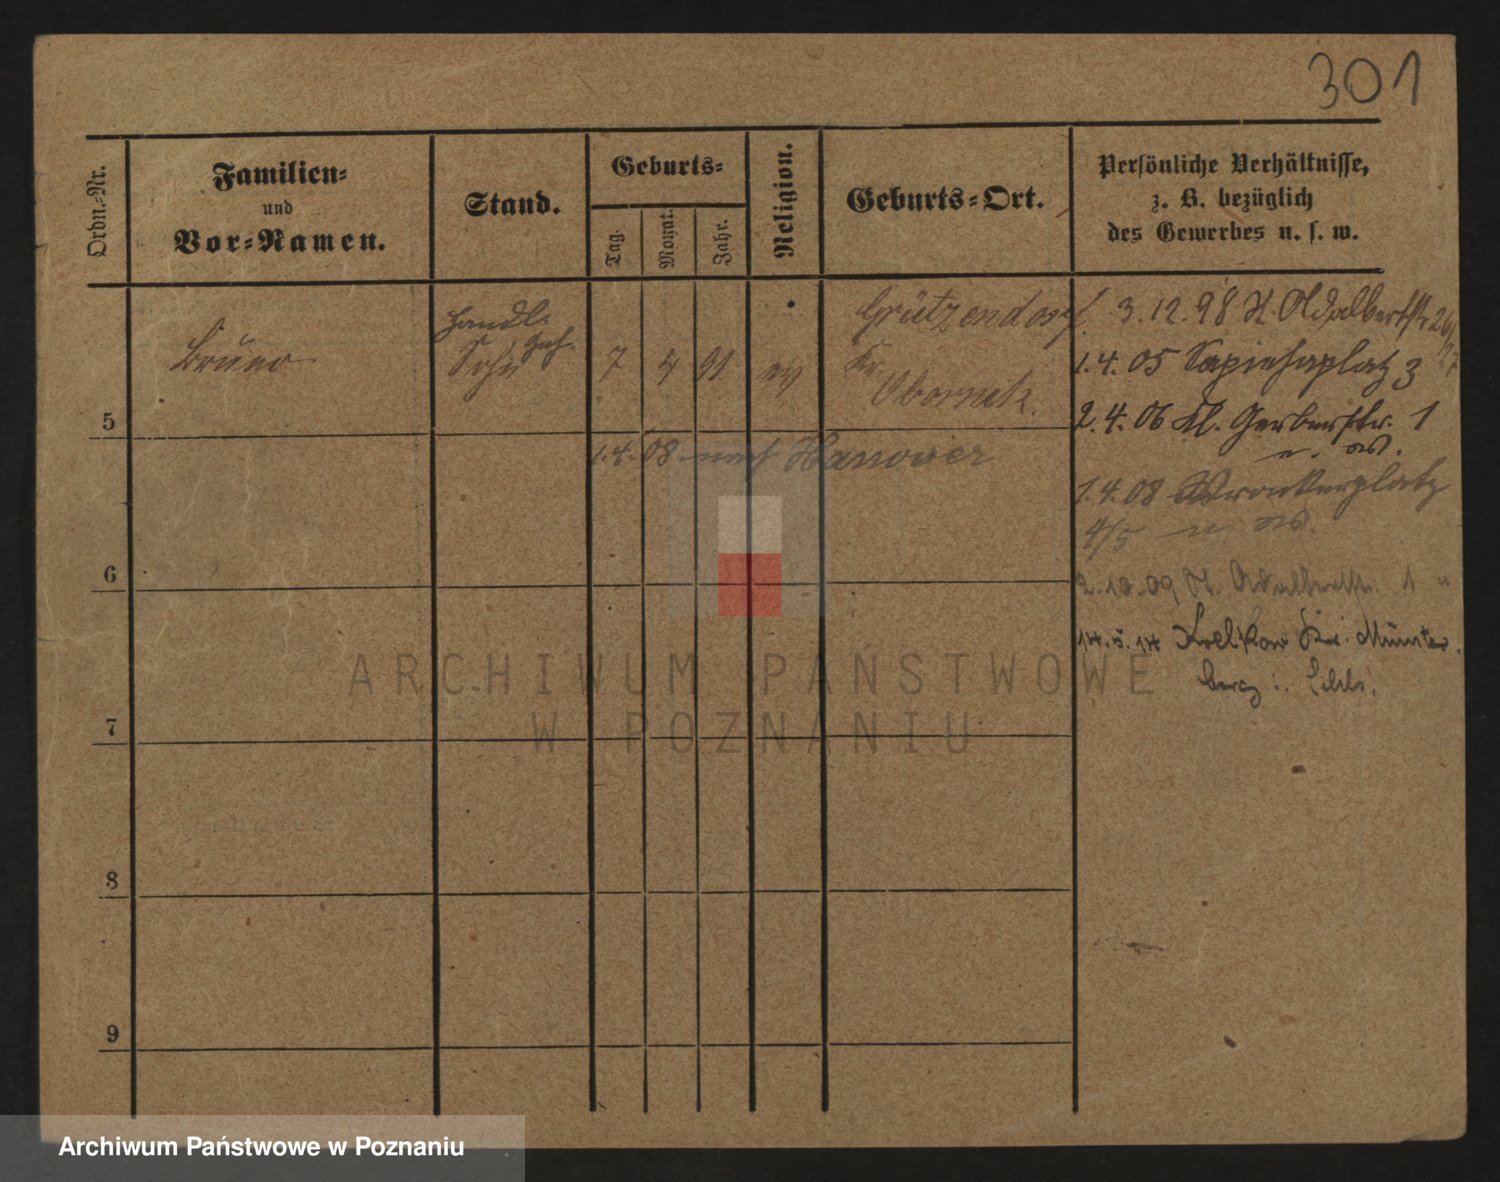 301
Ordn.-Nr.
Familien-
und
Vor-Namen.
Stand.
Geburts-
Tag.
Monat.
Jahr.
Religion.
Geburts-Ort.
Persönliche Verhältnisse,
z. B. bezüglich
des Gewerbes u. s. w.
Handl.
Geh.
Bruno
Sohn
7
4
91
ev
Grützendorf
Kr.
Obornik.
5
1.4.08 nach Hanover
3.12.98 St. Adalbertstr 26/27
1.4.05 Sapiehaplatz 3
2.4.06 Kl. Gerberstr. 1
1.4.08 Wronkerplatz
4/5
2.10.09 St. Adalbertstr. 1
14.5.14 Kr. Münster
berg i. Schls.
6
7
8
9
ARCHIWUM PAŃSTWOWE
W POZNANIU
Archiwum Państwowe w Poznaniu